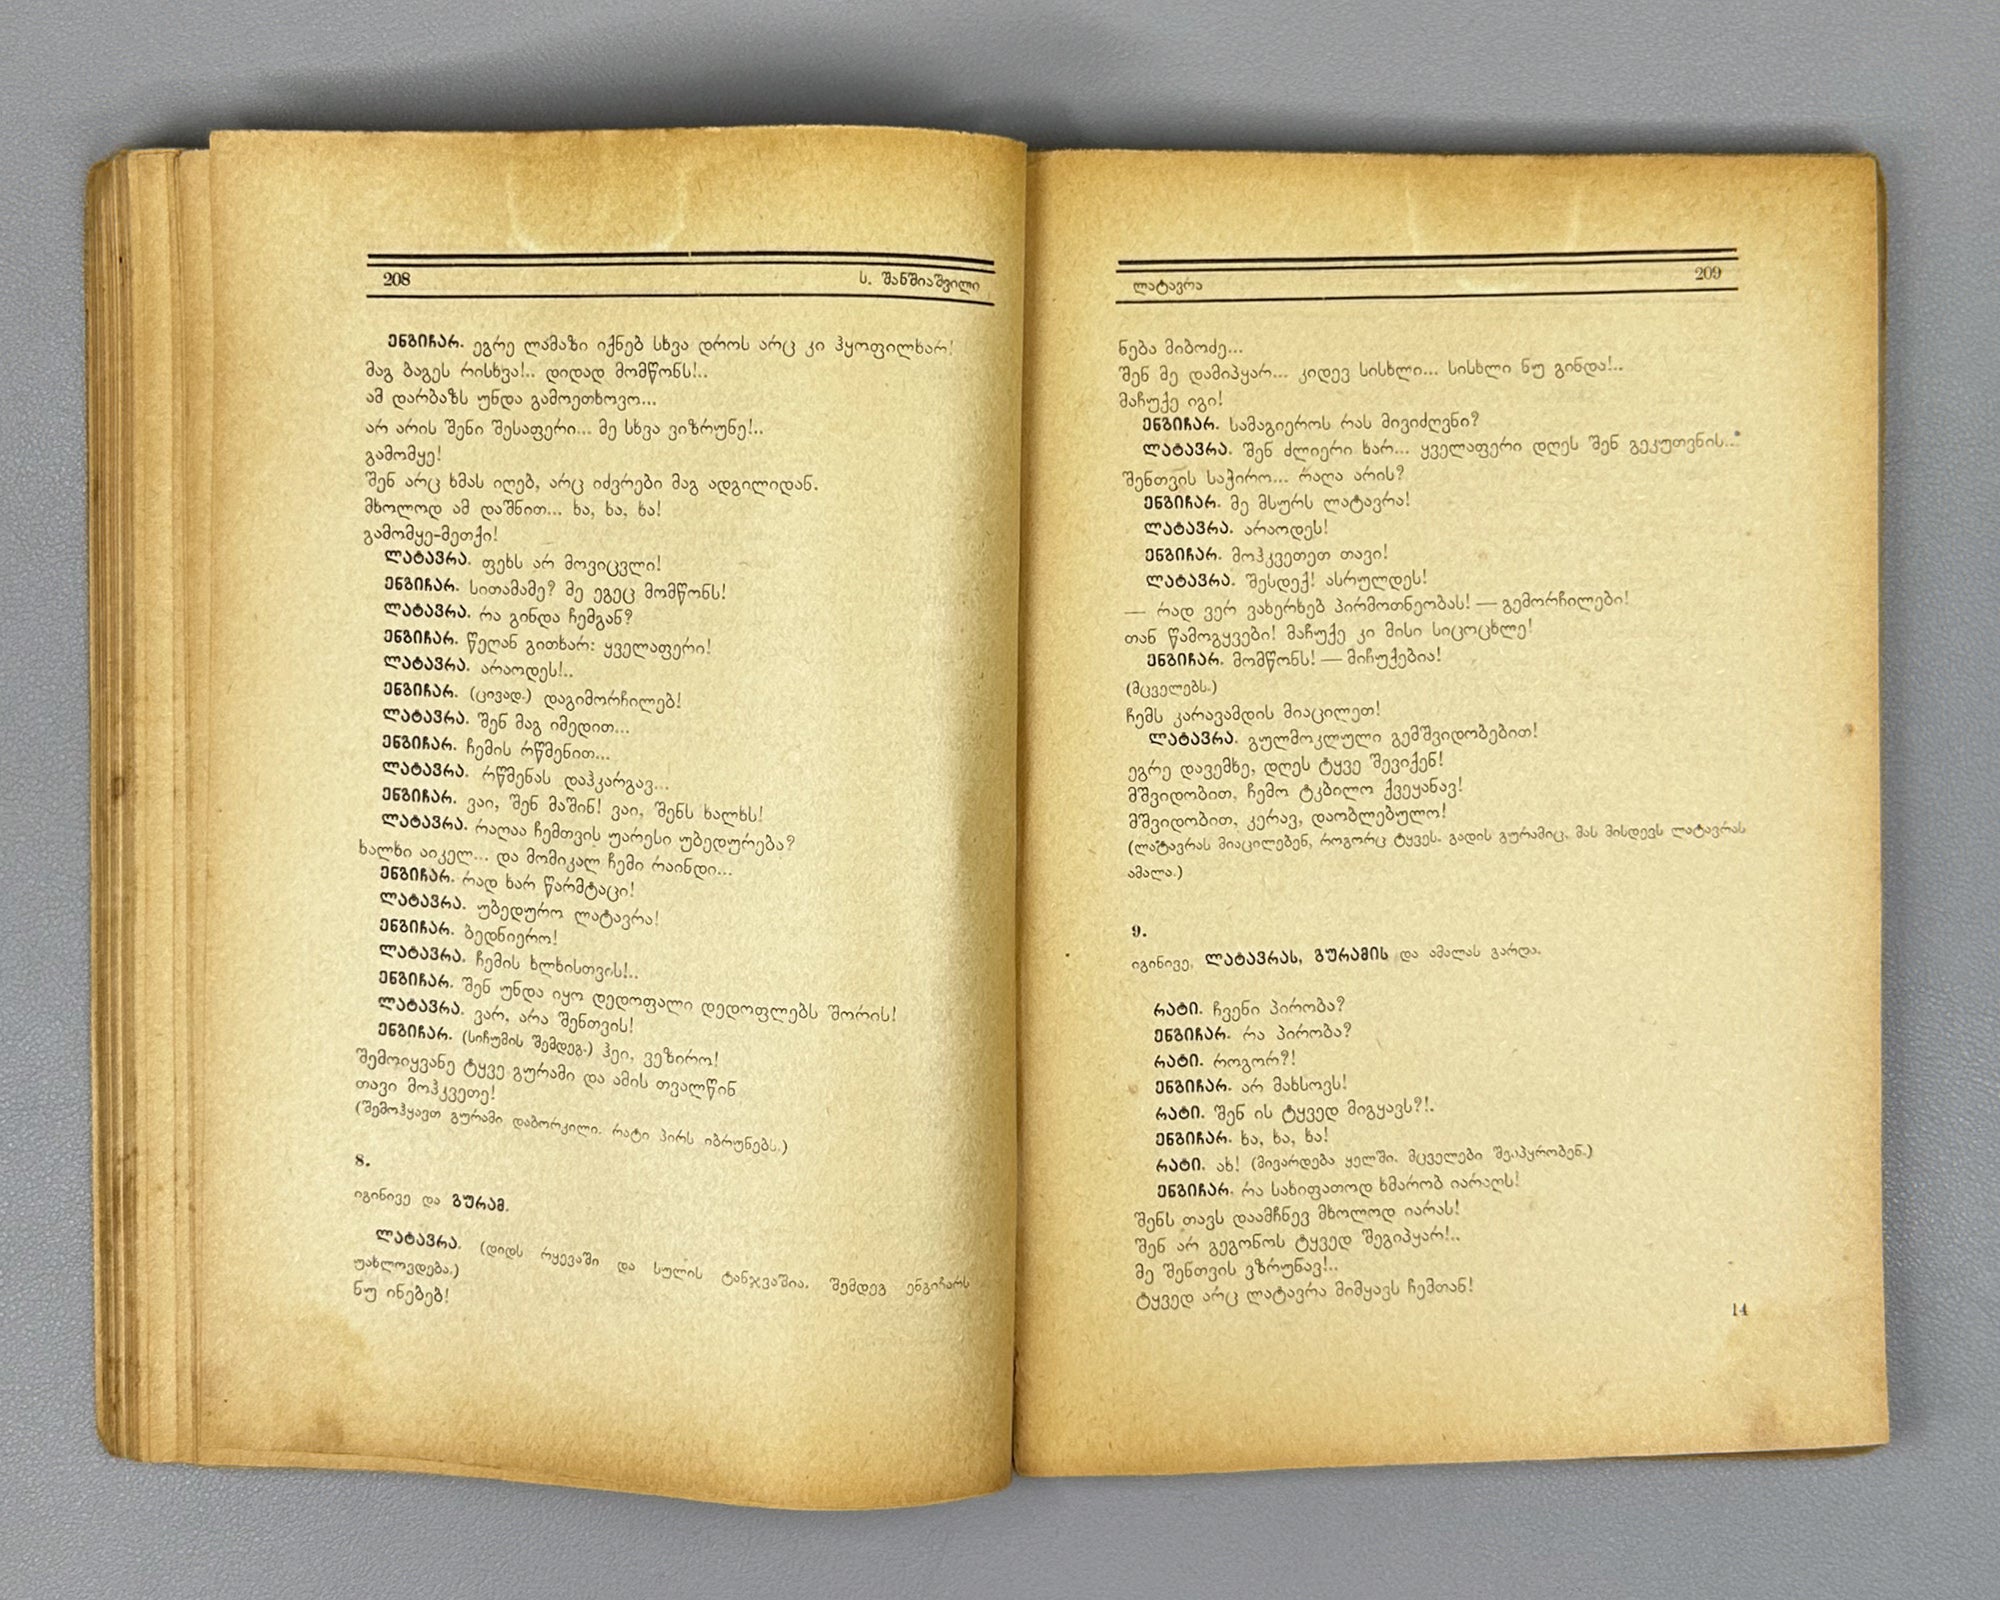 208
ს. შანშიაშვილი
ენგიჩარ. ეგრე ლამაზი იქნებ სხვა დროს არც კი ჰყოფილხარ!
მაგ ბაგეს რისხვა!.. დიდად მომწონს!..
ამ დარბაზს უნდა გამოეთხოვო...
არ არის შენი შესაფერი... მე სხვა ვიზრუნე!..
გამომყე!
შენ არც ხმას იღებ, არც იძვრები მაგ ადგილიდან.
მხოლოდ ამ დაშნით... ხა, ხა, ხა!
გამომყე-მეთქი!
ლატავრა. ფეხს არ მოვიცვლი!
ენგიჩარ. სითამამე? მე ეგეც მომწონს!
ლატავრა. რა გინდა ჩემგან?
ენგიჩარ. წეღან გითხარ: ყველაფერი!
ლატავრა. არაოდეს!..
ენგიჩარ. (ცივად.) დაგიმორჩილებ!
ლატავრა. შენ მაგ იმედით...
ენგიჩარ. ჩემის რწმენით...
ლატავრა. რწმენას დაჰკარგავ...
ენგიჩარ. ვაი, შენ მაშინ! ვაი, შენს ხალხს!
ლატავრა. რაღაა ჩემთვის უარესი უბედურება?
ხალხი აიკელ... და მომიკალ ჩემი რაინდი...
ენგიჩარ. რად ხარ წარმტაცი!
ლატავრა. უბედურო ლატავრა!
ენგიჩარ. ბედნიერო!
ლატავრა. ჩემის ხლხისთვის!..
ენგიჩარ. შენ უნდა იყო დედოფალი დედოფლებს შორის!
ლატავრა. ვარ, არა შენთვის!
ენგიჩარ. (სიჩუმის შემდეგ.) ჰეი, ვეზირო!
შემოიყვანე ტყვე გურამი და ამის თვალწინ
თავი მოჰკვეთე!
(შემოჰყავთ გურამი დაბორკილი. რატი პირს იბრუნებს.)
8.
იგინივე და გურამ.
ლატავრა. (დიდს რყევაში და სულის ტანჯვაშია. შემდეგ ენგიჩარს
უახლოვდება.)
ნუ ინებებ!
ლატავრა
209
ნება მიბოძე...
შენ მე დამიპყარ... კიდევ სისხლი... სისხლი ნუ გინდა!..
მაჩუქე იგი!
ენგიჩარ. სამაგიეროს რას მივიძღვნი?
ლატავრა. შენ ძლიერი ხარ... ყველაფერი დღეს შენ გეკუთვნის...
შენთვის საჭირო... რაღა არის?
ენგიჩარ. მე მსურს ლატავრა!
ლატავრა. არაოდეს!
ენგიჩარ. მოჰკვეთეთ თავი!
ლატავრა. შესდექ! ასრულდეს!
— რად ვერ ვახერხებ პირმოთნეობას! — გემორჩილები!
თან წამოგყვები! მაჩუქე კი მისი სიცოცხლე!
ენგიჩარ. მომწონს! — მიჩუქებია!
(მცველებს.)
ჩემს კარავამდის მიაცილეთ!
ლატავრა. გულმოკლული გემშვიდობებით!
ეგრე დავემხე, დღეს ტყვე შევიქენ!
მშვიდობით, ჩემო ტკბილო ქვეყანავ!
მშვიდობით, კერავ, დაობლებულო!
(ლატავრას მიაცილებენ, როგორც ტყვეს. გადის გურამიც. მას მისდევს ლატავრას
ამალა.)
9.
იგინივე, ლატავრას, გურამის და ამალას გარდა.
რატი. ჩვენი პირობა?
ენგიჩარ. რა პირობა?
რატი. როგორ?!
ენგიჩარ. არ მახსოვს!
რატი. შენ ის ტყვედ მიგყავს?!.
ენგიჩარ. ხა, ხა, ხა!
რატი. ახ! (მივარდება ყელში. მცველები შეიპყრობენ.)
ენგიჩარ. რა სახიფათოდ ხმარობ იარაღს!
შენს თავს დაამჩნევ მხოლოდ იარას!
შენ არ გეგონოს ტყვედ შეგიპყარ!..
მე შენთვის ვზრუნავ!..
ტყვედ არც ლატავრა მიმყავს ჩემთან!
14